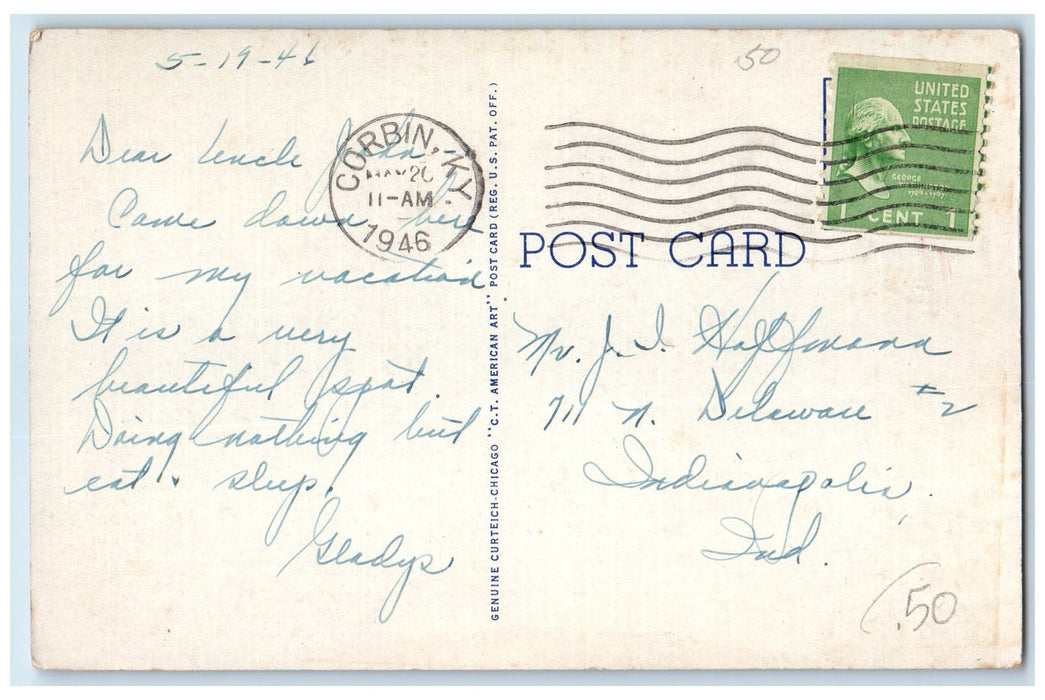 5-19-46
50
Dear Uncle John-
Came down here
for my vacation
It is a very
beautiful spot.
Doing nothing but
eat & sleep.
Gladys
CORBIN, KY
MAY 20
11-AM
1946
GENUINE CURTEICH-CHICAGO "C.T. AMERICAN ART" POST CARD (REG. U.S. PAT. OFF.)
UNITED
STATES
POSTAGE
GEORGE
WASHINGTON
1789-1797
1 CENT 1
POST CARD
Mr. J. I. Hoffmann
711 N. Delaware #2
Indianapolis,
Ind.
.50